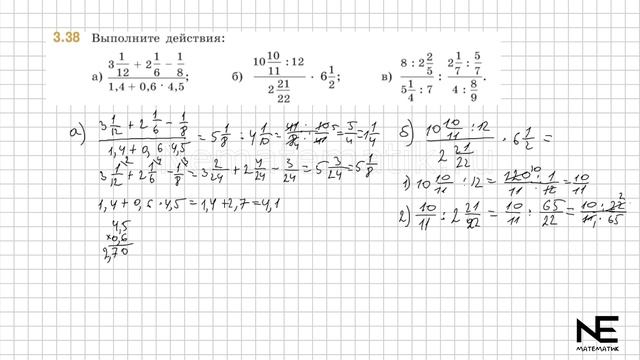 3.38 Выполните действия:
а) (3 1/12 + 2 1/6 − 1/8)/(1,4 + 0,6 · 4,5); б) (10 10/11 : 12)/(2 21/22) · 6 1/2; в) (8 : 2 2/5)/(5 1/4 : 7) : (2 1/7 : 5/7)/(4 : 8/9).
а) (3 1/12 + 2 1/6 − 1/8)/(1,4 + 0,6 · 4,5) = 5 1/8 : 4 1/10 = (41 · 10 5)/(8 4 · 41) = 5/4 = 1 1/4
3 1/12 \2 + 2 1/6 \4 − 1/8 \3 = 3 2/24 + 2 4/24 − 3/24 = 5 3/24 = 5 1/8
1,4 + 0,6 · 4,5 = 1,4 + 2,7 = 4,1
4,5
×0,6
2,70
б) (10 10/11 : 12)/(2 21/22) · 6 1/2 =
1) 10 10/11 : 12 = (120 10 · 1)/(11 · 12) = 10/11
2) 10/11 : 2 21/22 = 10/11 : 65/22 = (10 · 22 2)/(11 1 · 65)
NE
МАТЕМАТИК